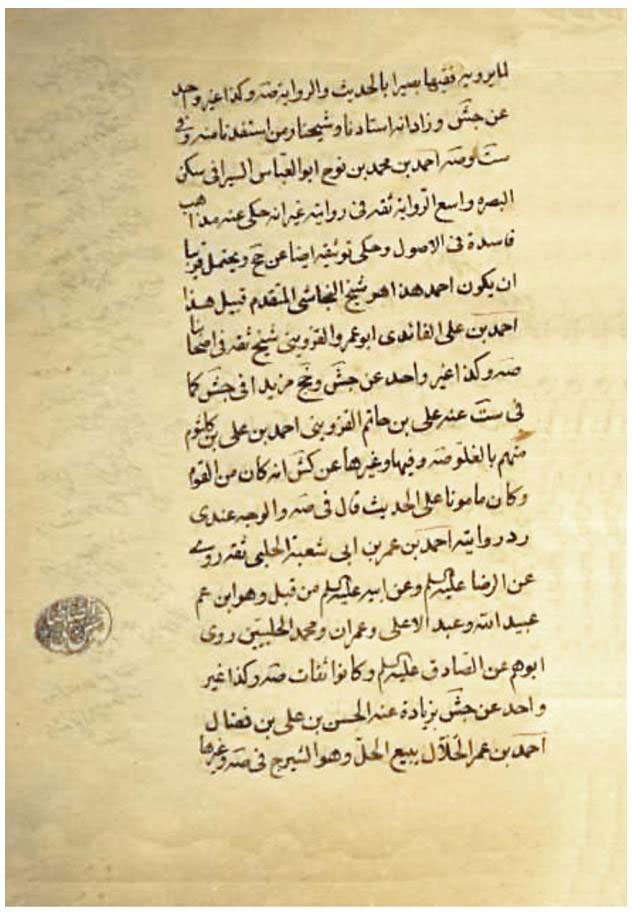 لما يرويه فقيها بصيرا بالحديث والرواية صه وكذا غير واحد
عن جش وزاد انه استادنا وشيخنا ومن استفدنا منه وفي
ست وصه احمد بن محمد بن نوح ابو العباس السيرافي سكن
البصره واسع الرواية ثقه في روايته غير انه حكى عنه مذاهب
فاسدة في الاصول وحكى توثيقه ايضا عن جخ ويحتمل قريبا
ان يكون احمد هذا هو شيخ النجاشي المتقدم قبيل هذا
احمد بن علي الفائدي ابو عمر والقزويني شيخ ثقه في اصحابنا
صه وكذا غير واحد عن جش وجخ مزيدا في جش كما
في ست عنه علي بن حاتم القزويني احمد بن علي بن كلثوم
متهم بالغلو صه وفيها وغيرها عن كش انه كان من القوم
وكان مامونا على الحديث قال في صه والوجه عندي
رد روايته احمد بن عمر بن ابي شعبة الحلبي ثقه روى
عن الرضا عليه السلم وعن ابيه عليه السلم من قبل وهو ابن عم
عبيد الله وعبد الاعلى وعمران ومحمد الحلبيين روى
ابوهم عن الصادق عليه السلم وكانوا ثقات صه وكذا غير
واحد عن جش بزيادة عنه الحسن بن علي بن فضال
احمد بن عمر الحلال يبيع الحل وهو الشيرج في صه وغيرها